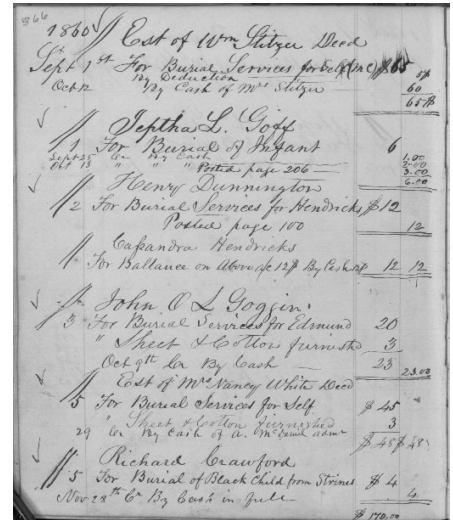 366
1860 Est of Wm Stitzer Decd
Sept 1st For Burial Services for Self (M.C) $65
By Deduction 5$
Oct 12 By Cash of Mrs Stitzer 60
65$
Jeptha L. Goff
1 For Burial of Infant 6
Sept 25 Cr By Cash 1.00
Oct 13 " " " 2.00
" Posted page 206 — 3.00
6.00
Henry Dunnington
2 For Burial Services for Hendricks $12
Posted page 100 12
Cassandra Hendricks
" For Ballance on Above a/c 12$ By Cash 12$ 12 12
John O L Goggin
3 For Burial Services for Edmund 20
" Sheet & Cotton furnished 3
Oct 9th Cr By Cash 23 23.00
Est of Mrs Nancy White Decd
5 For Burial Services for Self $45
" Sheet & Cotton furnished 3
29 Cr By Cash of A. admr $48 $48
Richard Crawford
5 For Burial of Black Child from $4
Nov 28th Cr By Cash in full 4
$170.00